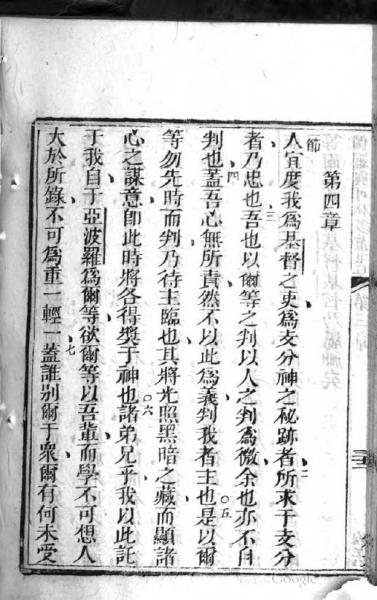 第四章
節
人宜度我爲基督之吏爲支分神之秘跡者所求于支分
二
者乃忠也吾也以爾等之判以人之判爲微余也亦不自
三
判也蓋吾心無所責然不以此爲義判我者主也是以爾
四
五
等勿先時而判乃待主臨也其將光照黑暗之藏而顯諸
心之謀意卽此時將各得獎于神也諸弟兄乎我以此託
六
于我自于亞波羅爲爾等欲爾等以吾輩而學不可想人
大於所錄不可爲重一輕一蓋誰別爾于眾爾有何未受
七
Google